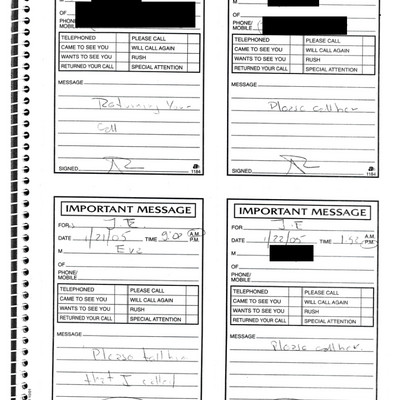 OF
PHONE/
MOBILE
TELEPHONED PLEASE CALL
CAME TO SEE YOU WILL CALL AGAIN
WANTS TO SEE YOU RUSH
RETURNED YOUR CALL SPECIAL ATTENTION
MESSAGE
Returning Your
Call
SIGNED
1184
OF
PHONE/
MOBILE
TELEPHONED PLEASE CALL
CAME TO SEE YOU WILL CALL AGAIN
WANTS TO SEE YOU RUSH
RETURNED YOUR CALL SPECIAL ATTENTION
MESSAGE
Please call her
SIGNED
1184
IMPORTANT MESSAGE
FOR J.E.
DATE 1/21/05 TIME 9:00 A.M. P.M.
M Eva
OF
PHONE/
MOBILE
TELEPHONED PLEASE CALL
CAME TO SEE YOU WILL CALL AGAIN
WANTS TO SEE YOU RUSH
RETURNED YOUR CALL SPECIAL ATTENTION
MESSAGE
Please tell him
that I called
IMPORTANT MESSAGE
FOR J.E
DATE 1/22/05 TIME A.M. P.M.
M
OF
PHONE/
MOBILE
TELEPHONED PLEASE CALL
CAME TO SEE YOU WILL CALL AGAIN
WANTS TO SEE YOU RUSH
RETURNED YOUR CALL SPECIAL ATTENTION
MESSAGE
Please call her.